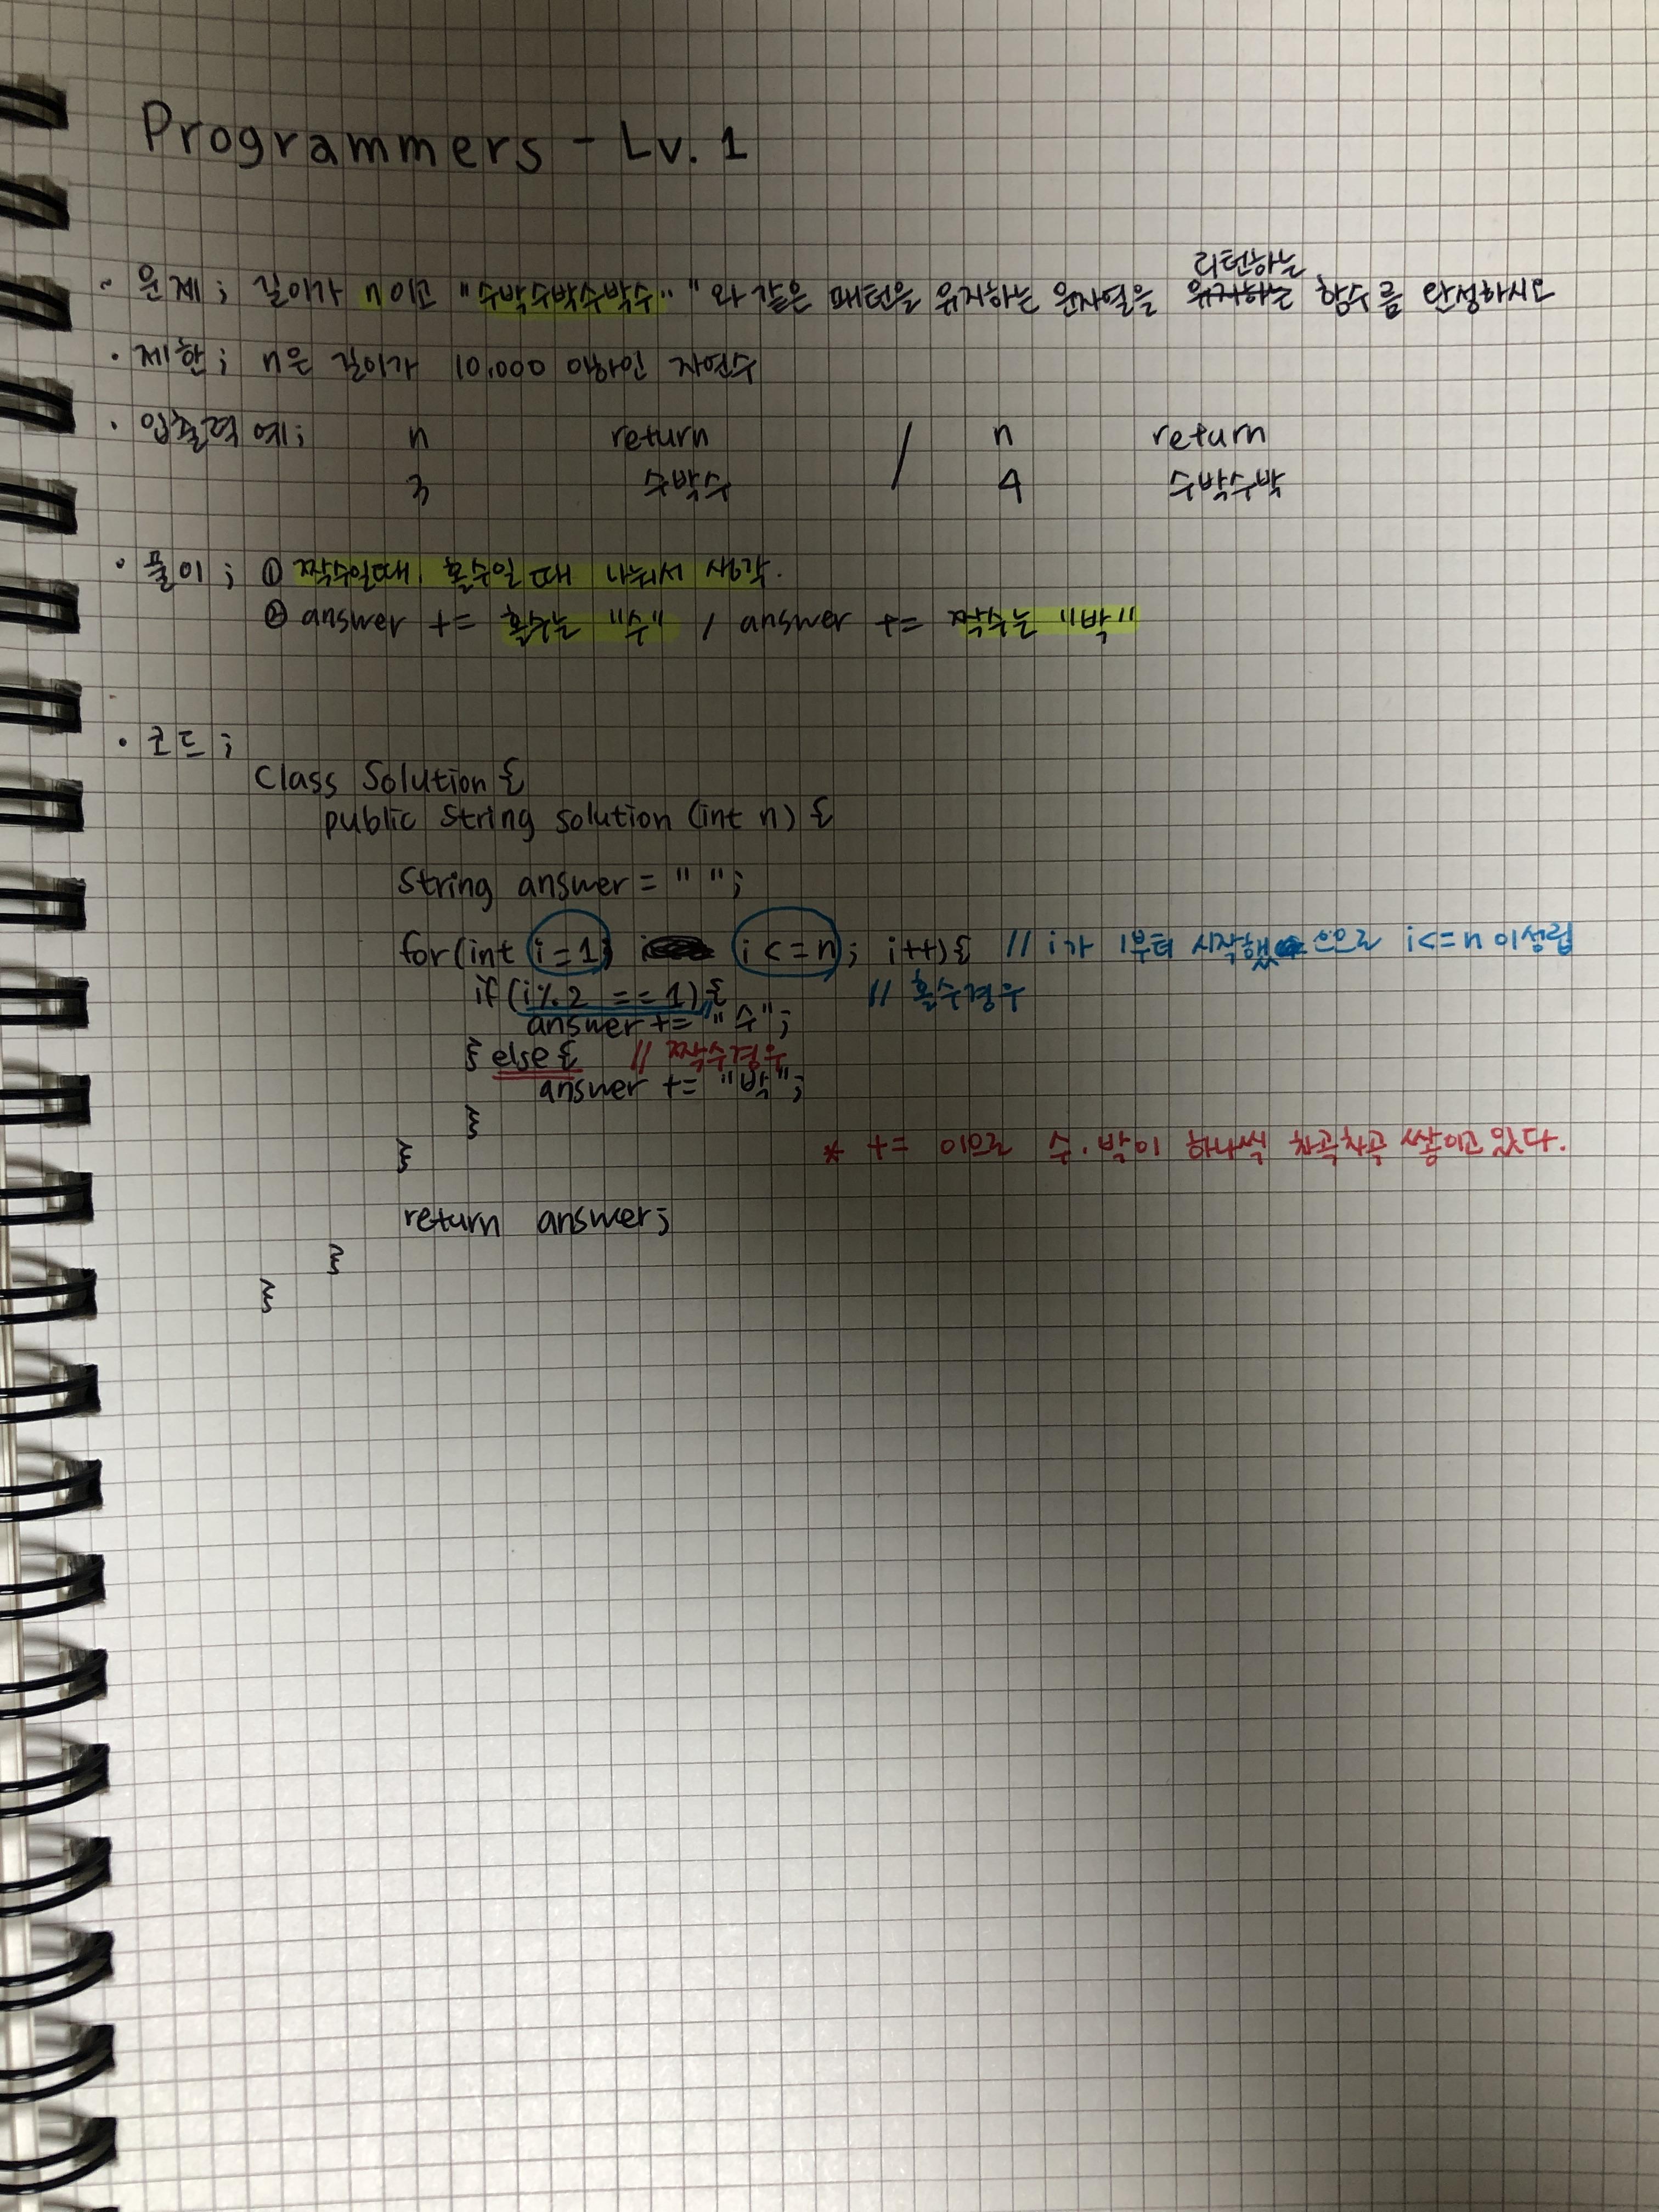 Programmers - Lv. 1
리턴하는
· 문제; 길이가 n이고 "수박수박수박수.." 와 같은 패턴을 유지하는 문자열을 유지하는 함수를 완성하시오
· 제한; n은 길이가 10,000 이하인 자연수
· 입출력 예; n return / n return
3 수박수 4 수박수박
· 풀이; ① 짝수일때, 홀수일 때 나눠서 생각.
② answer += 홀수는 "수" / answer += 짝수는 "박"
· 코드;
Class Solution {
public String solution (int n) {
String answer = " ";
for(int i=1; i i<=n; i++){ // i가 1부터 시작했으므로 i<=n 이성립
if(i%2 == 1){ // 홀수경우
answer += "수";
} else { // 짝수경우
answer += "박";
}
} * += 이으로 수.박이 하나씩 차곡차곡 쌓이고 있다.
return answer;
}
}